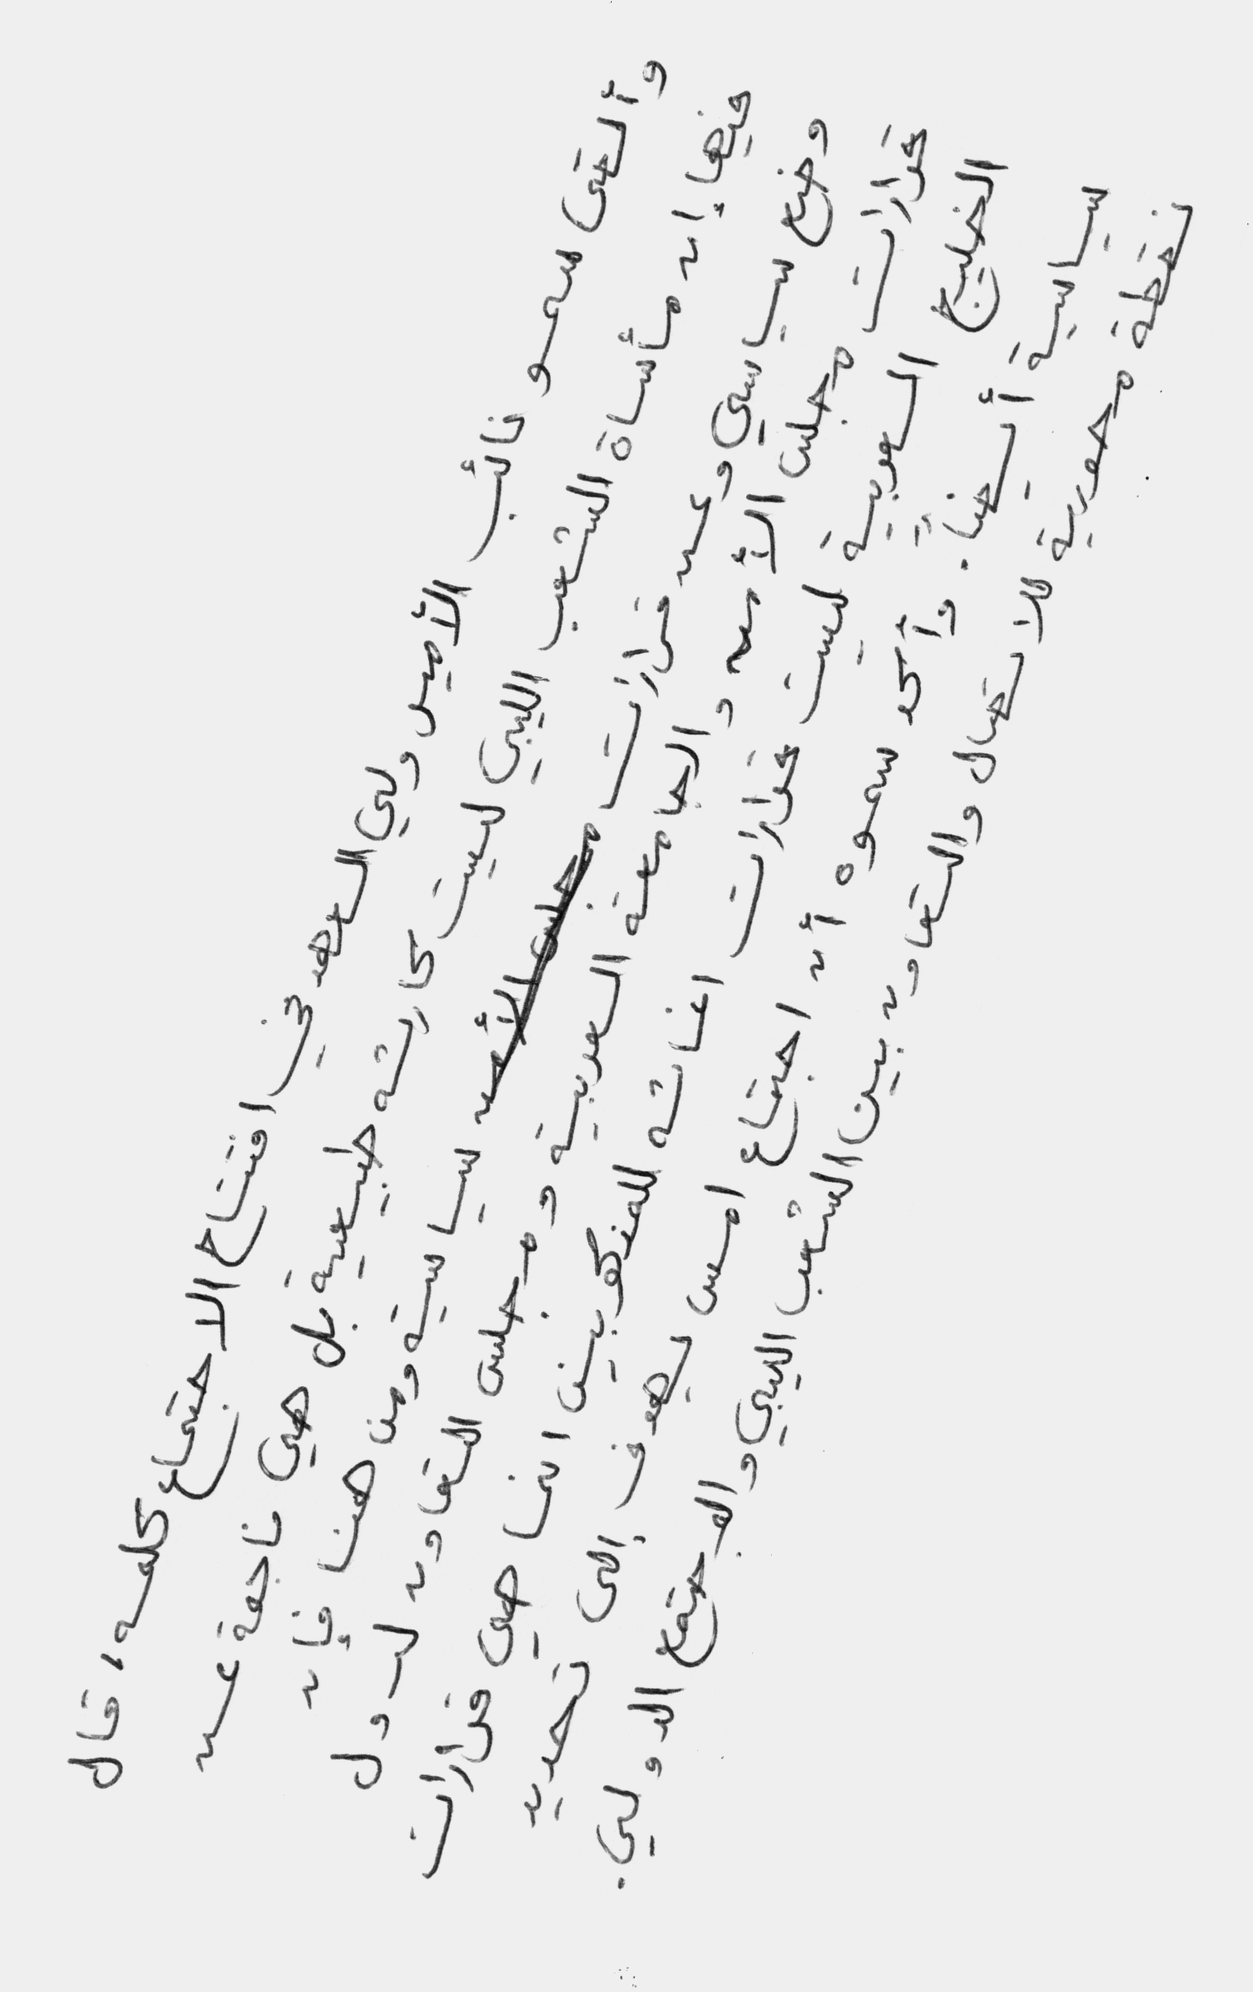 وألقى سمو نائب الأمير ولي العهد في افتتاح الاجتماع كلمه، قال
فيها إن مأساة الشعب الليبي ليست كارثه طبيعية بل هي ناجمة عن
وضع سياسي وعن قرارات سياسية ومن هنا فإن
قرارات مجلس الأمن والجامعة العربية ومجلس التعاون لدول
الخليج العربية ليست قرارات اغاثه للمنكوبين انما هي قرارات
سياسية أيضاً. وأكد سموه أن اجتماع امس يهدف إلى تحديد
نقطة محورية للاتصال والتعاون بين الشعب الليبي والمجتمع الدولي.